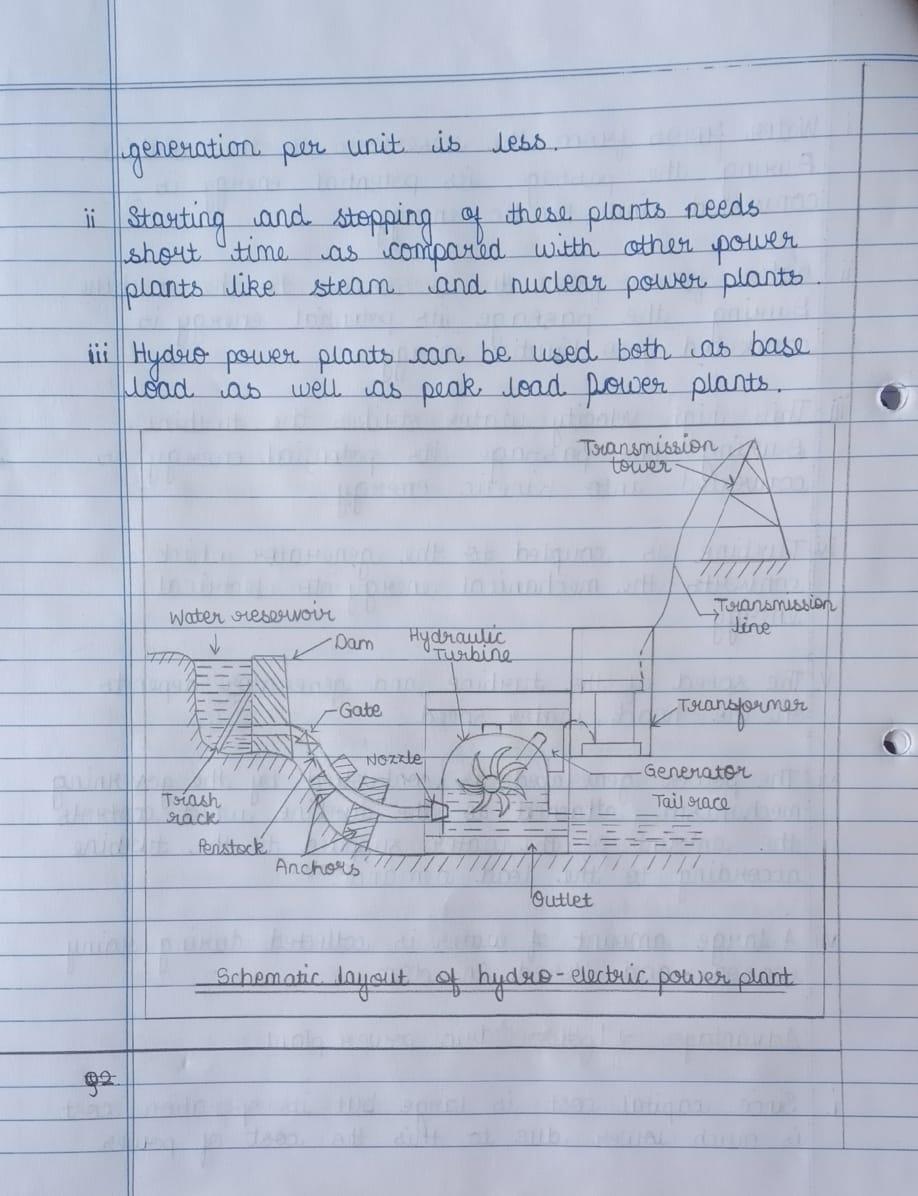 generation per unit is less.
ii Starting and stopping of these plants needs
short time as compared with other power
plants like steam and nuclear power plants.
iii Hydro power plants can be used both as base
load as well as peak load power plants.
Transmission
tower
Transmission
line
Water reservoir
Dam
Hydraulic
Turbine
Gate
Transformer
Nozzle
Generator
Trash
rack
Tail race
Penstock
Anchors
Outlet
Schematic layout of hydro-electric power plant